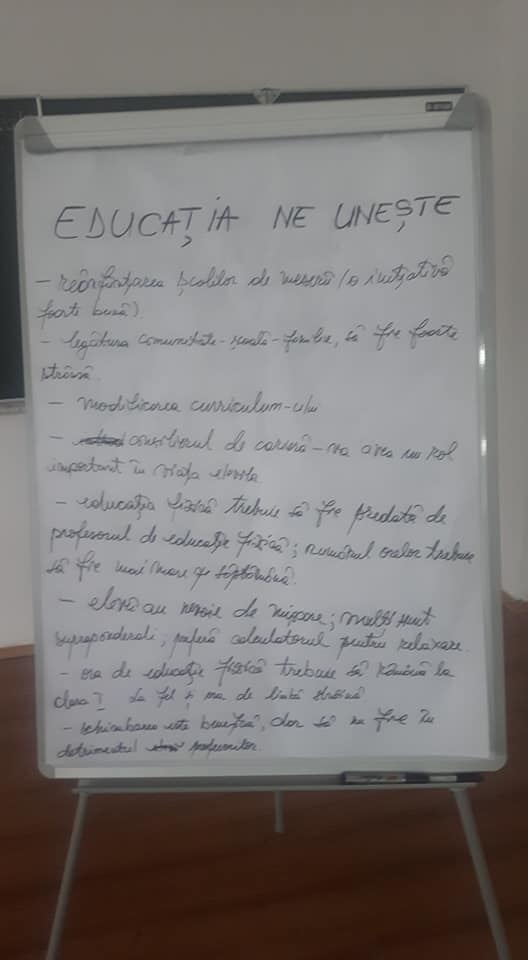 EDUCAȚIA NE UNEȘTE
- reînființarea școlilor de meserii (o inițiativă
foarte bună).
- legătura comunitate-școală-familie, să fie foarte
strânsă.
- modificarea curriculum-ului
- consilierul de carieră - va avea un rol
important în viața elevilor.
- educația fizică trebuie să fie predată de
profesorul de educație fizică; numărul orelor trebuie
să fie mai mare pe săptămână.
- elevii au nevoie de mișcare; mulți sunt
supraponderali, preferă calculatorul pentru relaxare.
- ora de educație fizică trebuie să rămână la
clasa I la fel și ora de limbă străină
- schimbarea este benefică, dar să nu fie în
detrimentul profesorilor.